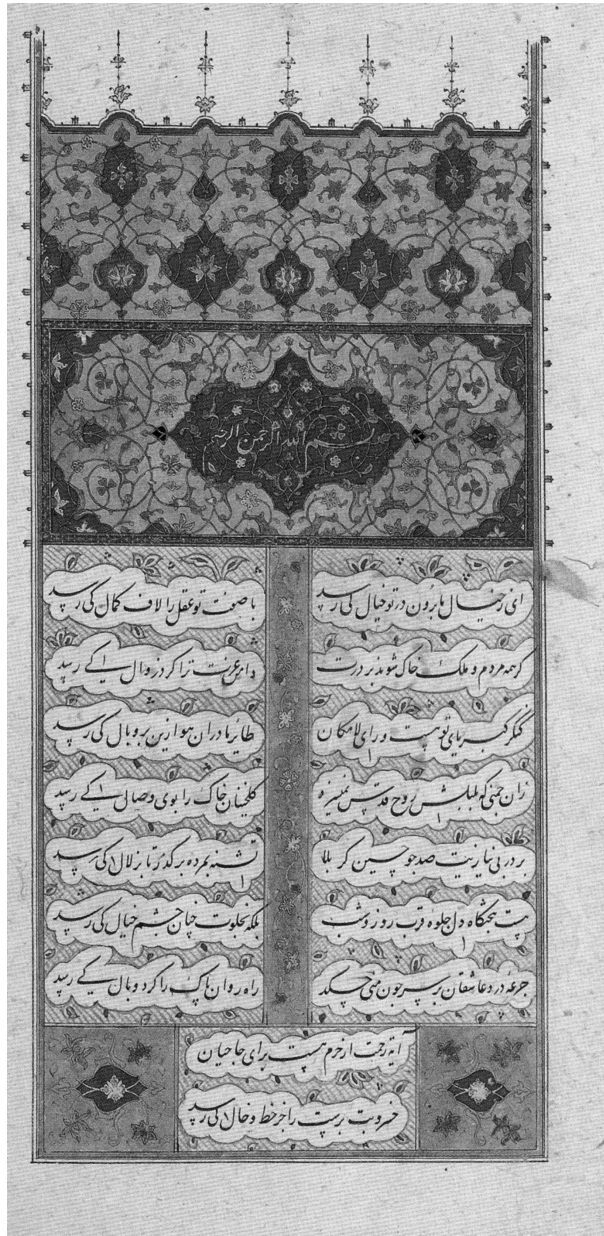 بسم الله الرحمن الرحیم
ای ز خیال ما برون در تو خیال کی رسد با صفت تو عقل را لاف کمال کی رسد
گر همه مردم و ملک خاک شوند بر درت دامن عزت ترا گرد زوال کی رسد
کنگر کبریای تو هست ورای لامکان طایر ما دران هوا زین پر و بال کی رسد
زان چمنی که بلبلش روح قدس نمیسزد گلخنیان خاک را بوی وصال کی رسد
بر در بی نیازیت صد چو حسین کربلا تشنه بمرده بر گذر تا بزلال کی رسد
نیست بتختگاه دل جلوه قرب روز و شب بلکه بخلوت چنان چشم خیال کی رسد
جرعه درد عاشقان بر سر چون منی چکد راه روان پاک را گرد وبال کی رسد
آیه رحمت از حرم هست برای حاجیان
خسرو بت پرست را جز خط و خال کی رسد